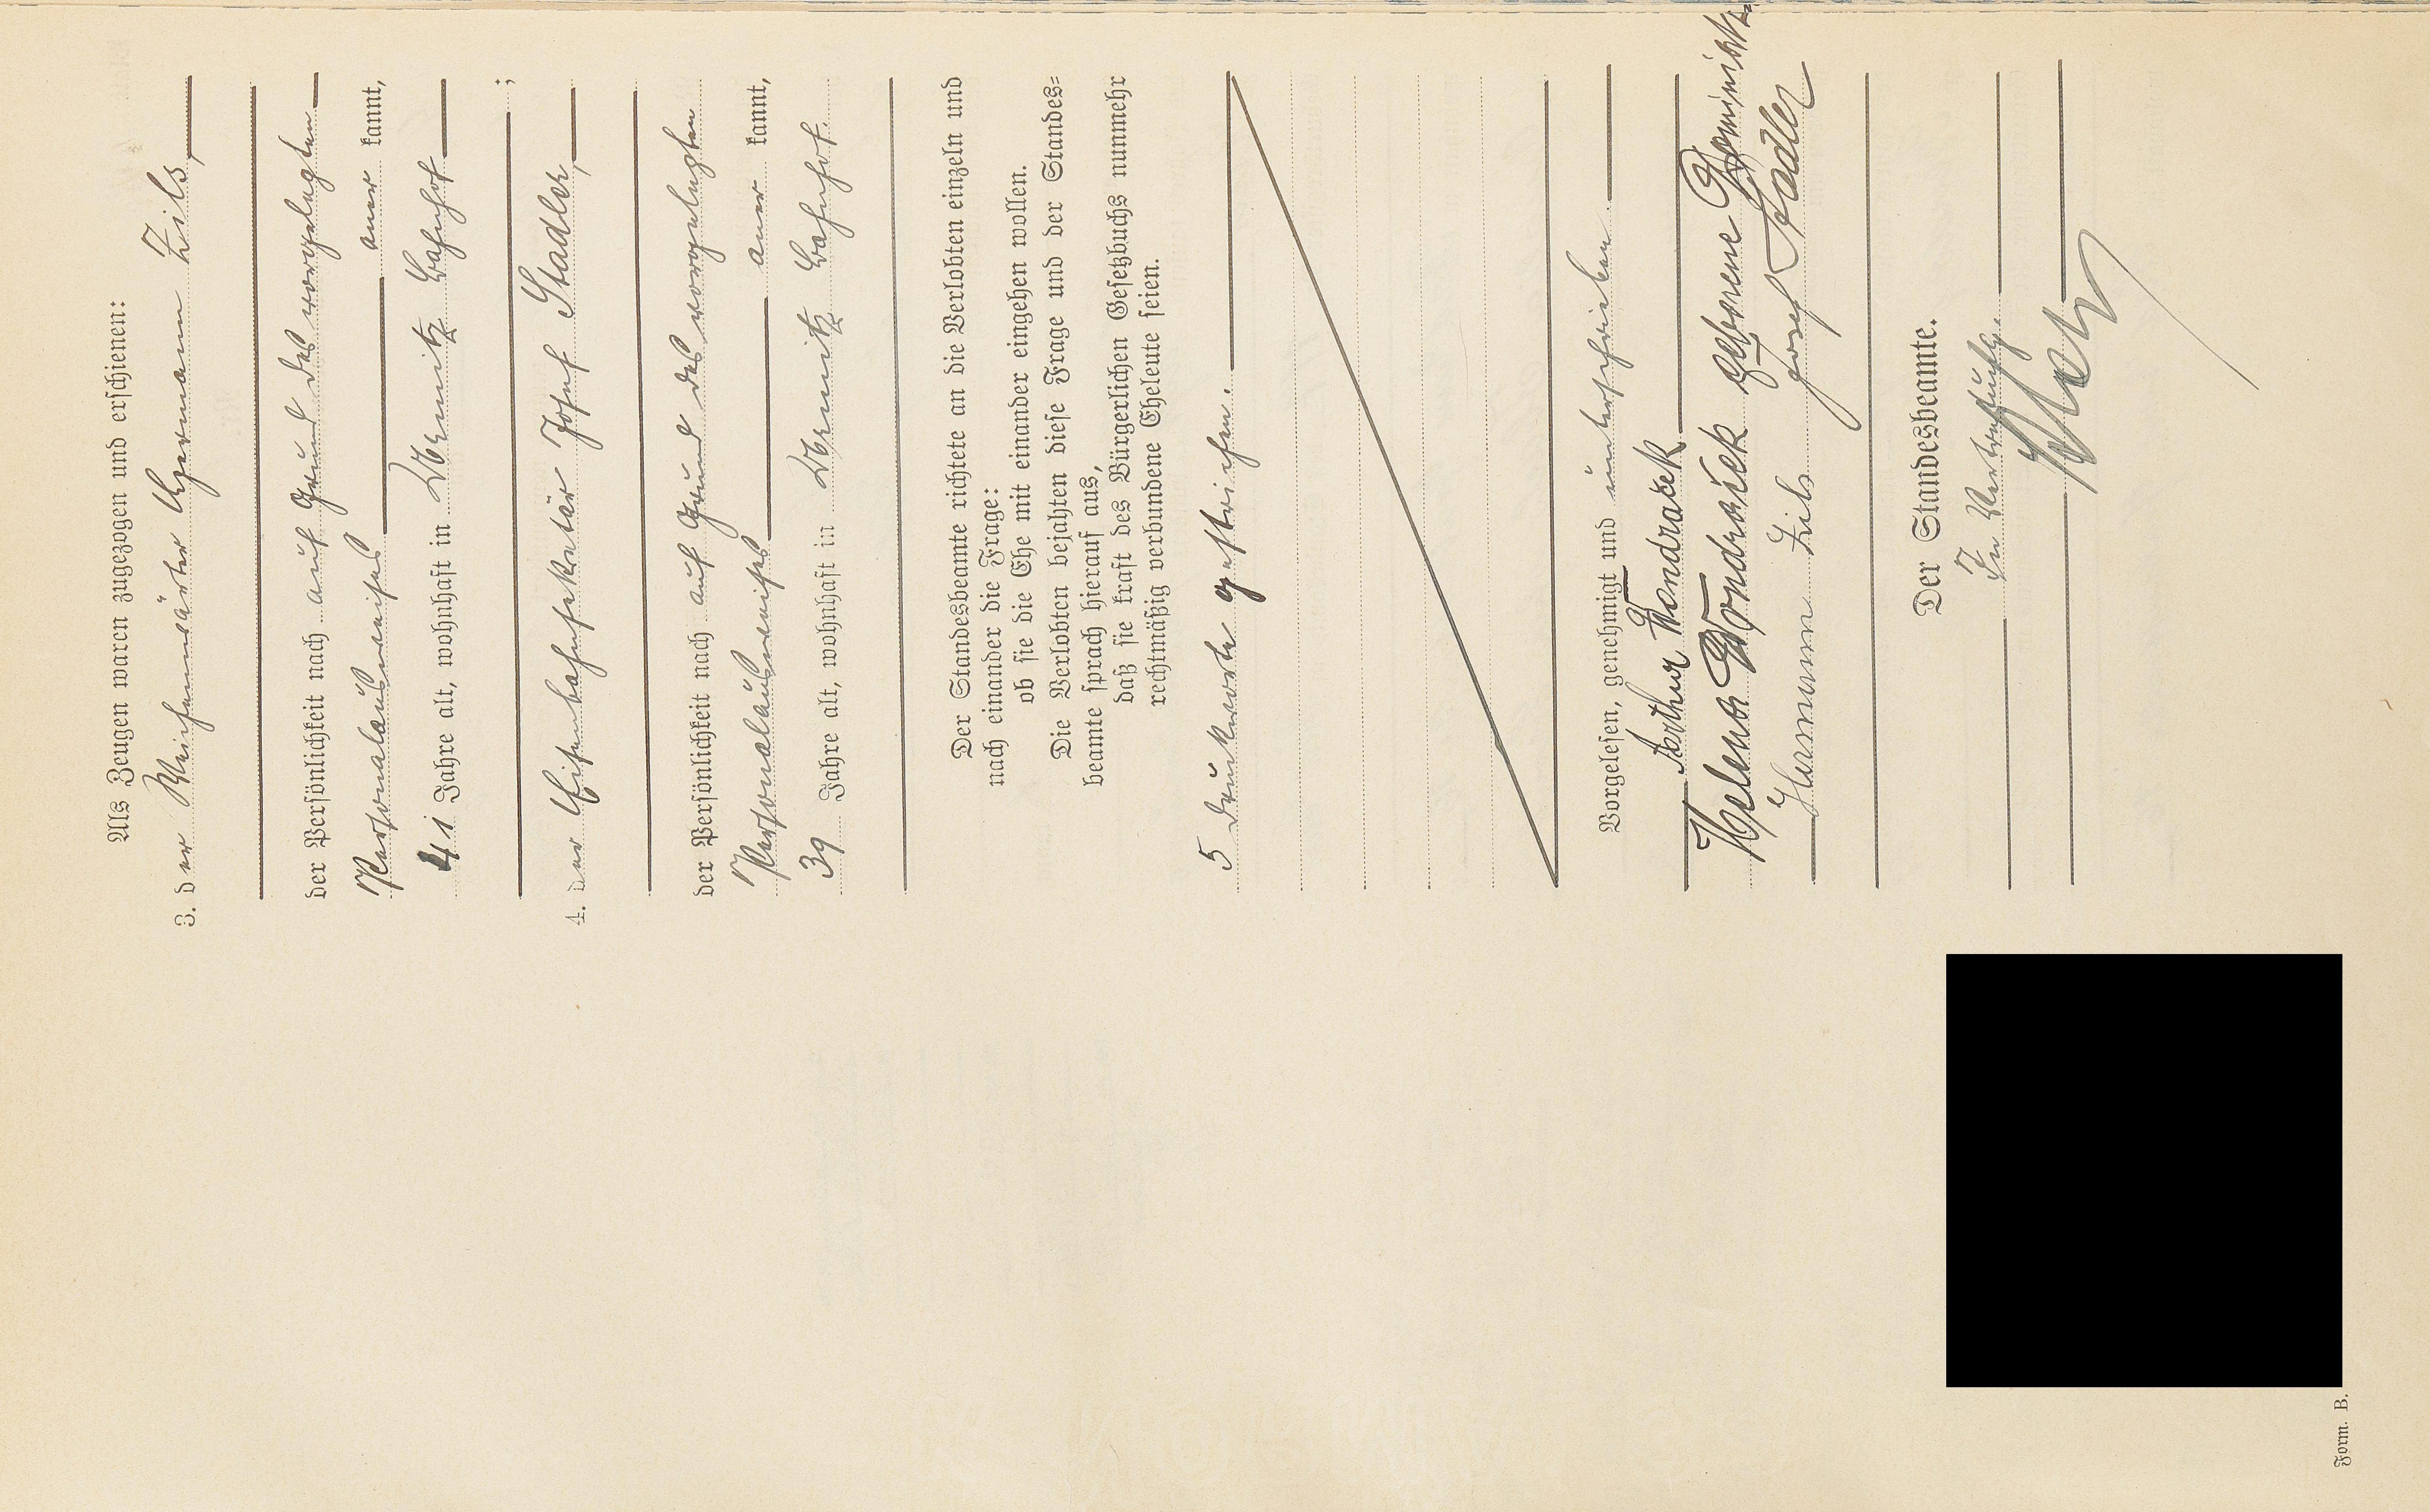 Als Zeugen waren zugezogen und erschienen:
3. der Weichenwärter Hermann Zils,
der Persönlichkeit nach auf Grund des vorgelegten
Personalausweises aner kannt,
41 Jahre alt, wohnhaft in Bahnhof
;
4. der Eisenbahnsekretär Josef Stadler,
der Persönlichkeit nach auf Grund des vorgelegten
Personalausweises aner kannt,
39 Jahre alt, wohnhaft in Bahnhof.
Der Standesbeamte richtete an die Verlobten einzeln und
nach einander die Frage:
ob sie die Ehe mit einander eingehen wollen.
Die Verlobten bejahten diese Frage und der Standes-
beamte sprach hierauf aus,
daß sie kraft des Bürgerlichen Gesetzbuchs nunmehr
rechtmäßig verbundene Eheleute seien.
5 Druckworte gestrichen.
Vorgelesen, genehmigt und unterschrieben.
Arthur Wondraček
Helena Wondraček geborene
Hermann Zils Josef Stadler
Der Standesbeamte.
In Vertretung.
Form. B.